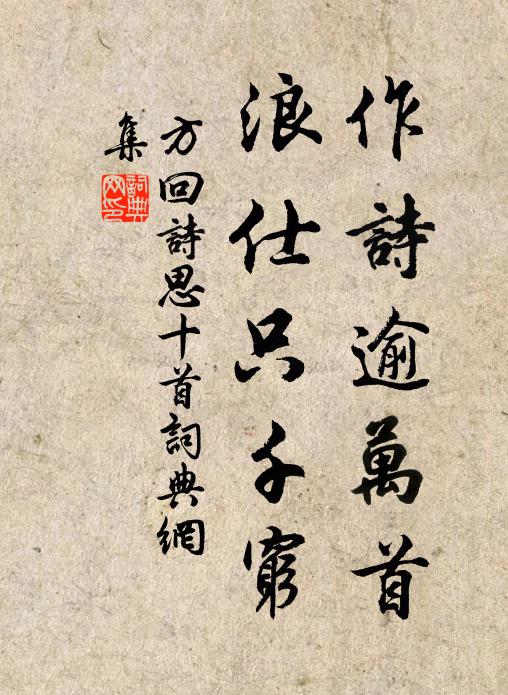 作詩逾萬首
浪仕只千窮
方回詩思十首詞典網
集
詞典
网印